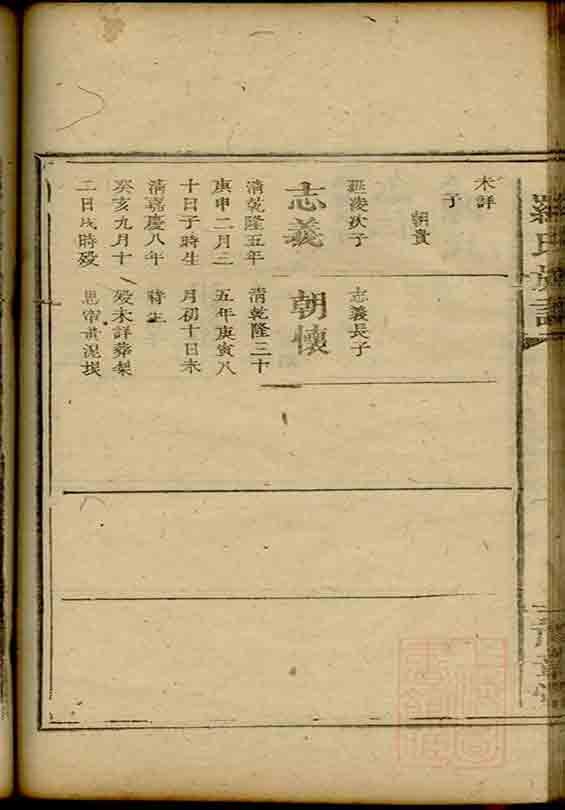 羅氏族譜
未詳
子
朝貴
次子
志義
清乾隆五年
庚申二月三
十日子時生
清嘉慶八年
癸亥九月十
二日戌時殁
志義長子
朝懷
清乾隆三十
五年庚寅八
月初十日未
時生
殁未詳葬梨